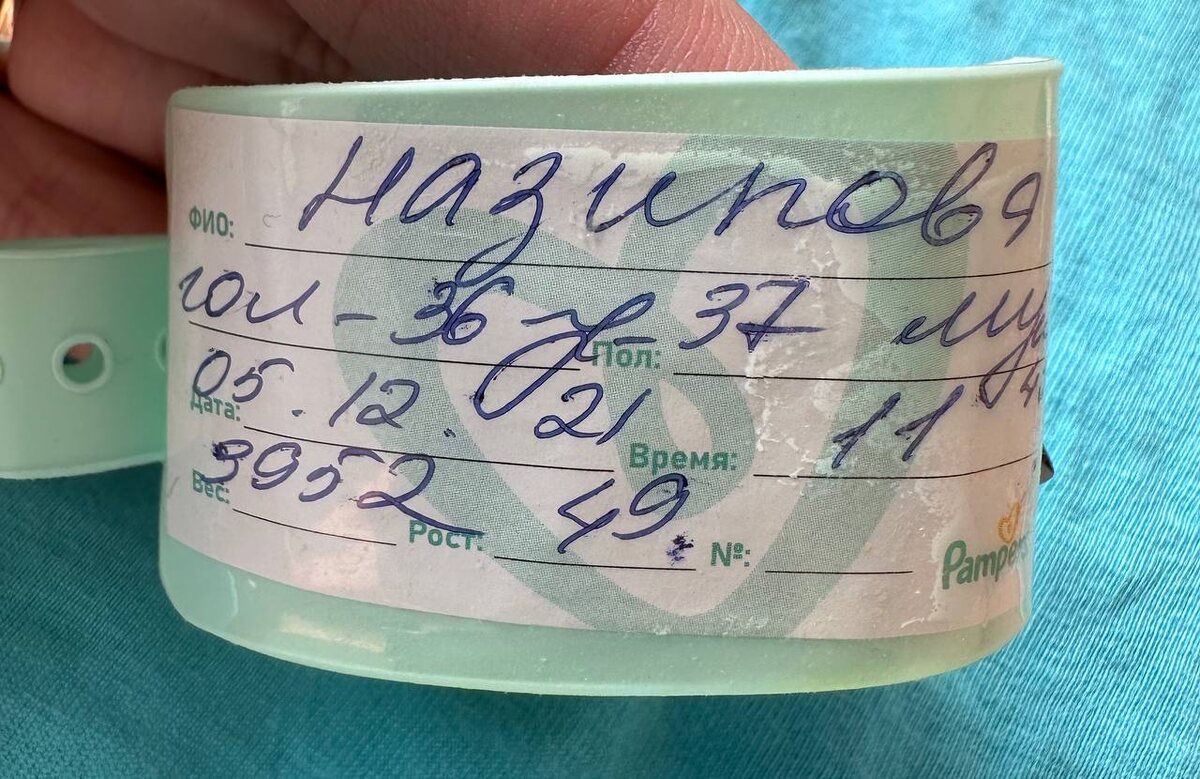 ФИО: Назипова
гол - 36 гр - 37 Пол: муж
Дата: 05.12.21 Время: 11 4
Вес: 3952 Рост: 49. №:
Pampe